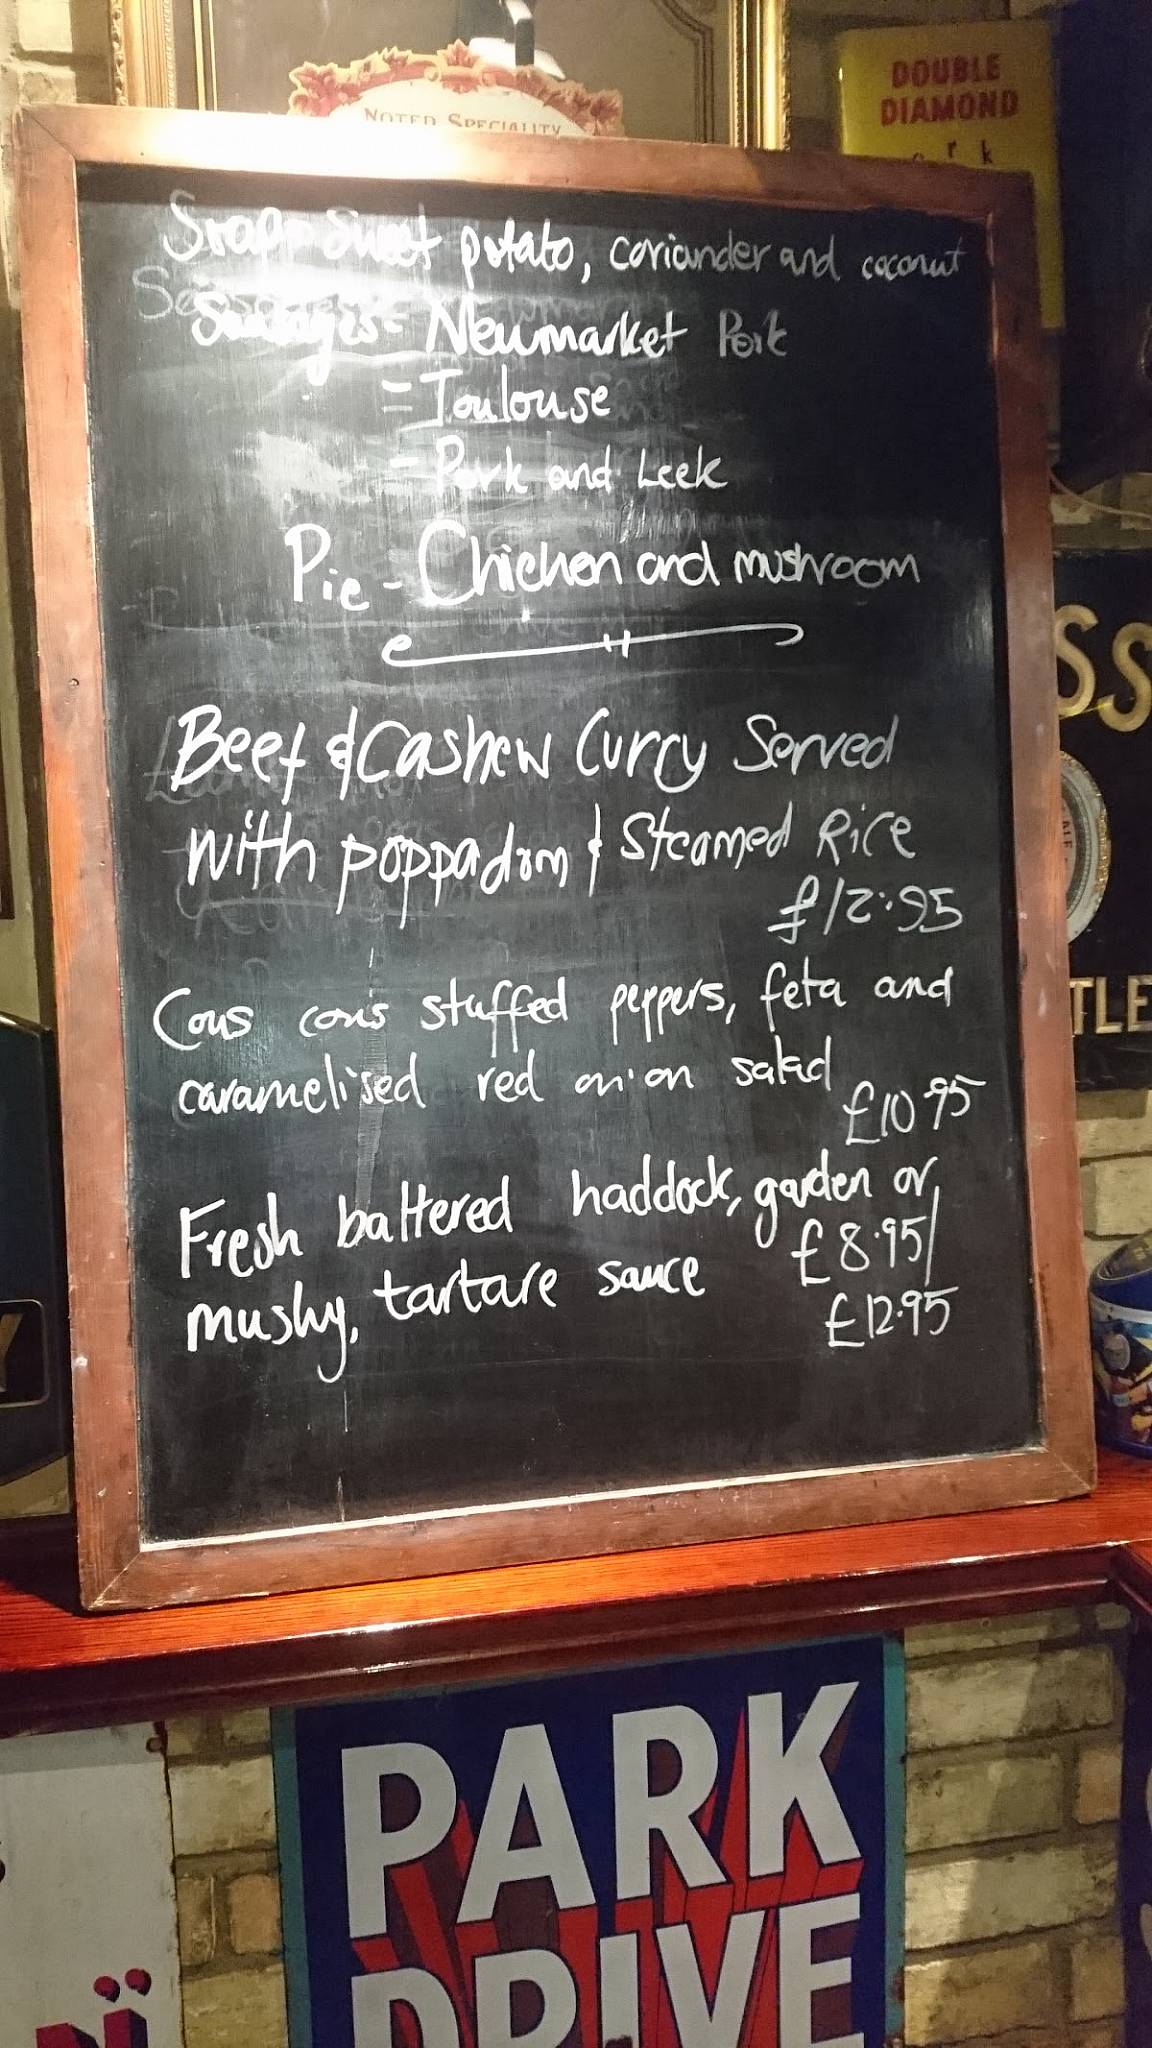 NOTED SPECIALITY
DOUBLE
DIAMOND
Soup - Sweet potato, coriander and coconut
Sausages - Newmarket Pork
= Toulouse
- Pork and Leek
Pie - Chicken and mushroom
Beef & Cashew Curry Served
with poppadom & Steamed Rice
£12.95
Cous cous stuffed peppers, feta and
caramelised red onion salad
£10.95
Fresh battered haddock, garden or
mushy, tartare sauce £8.95/
£12.95
PARK
DRIVE